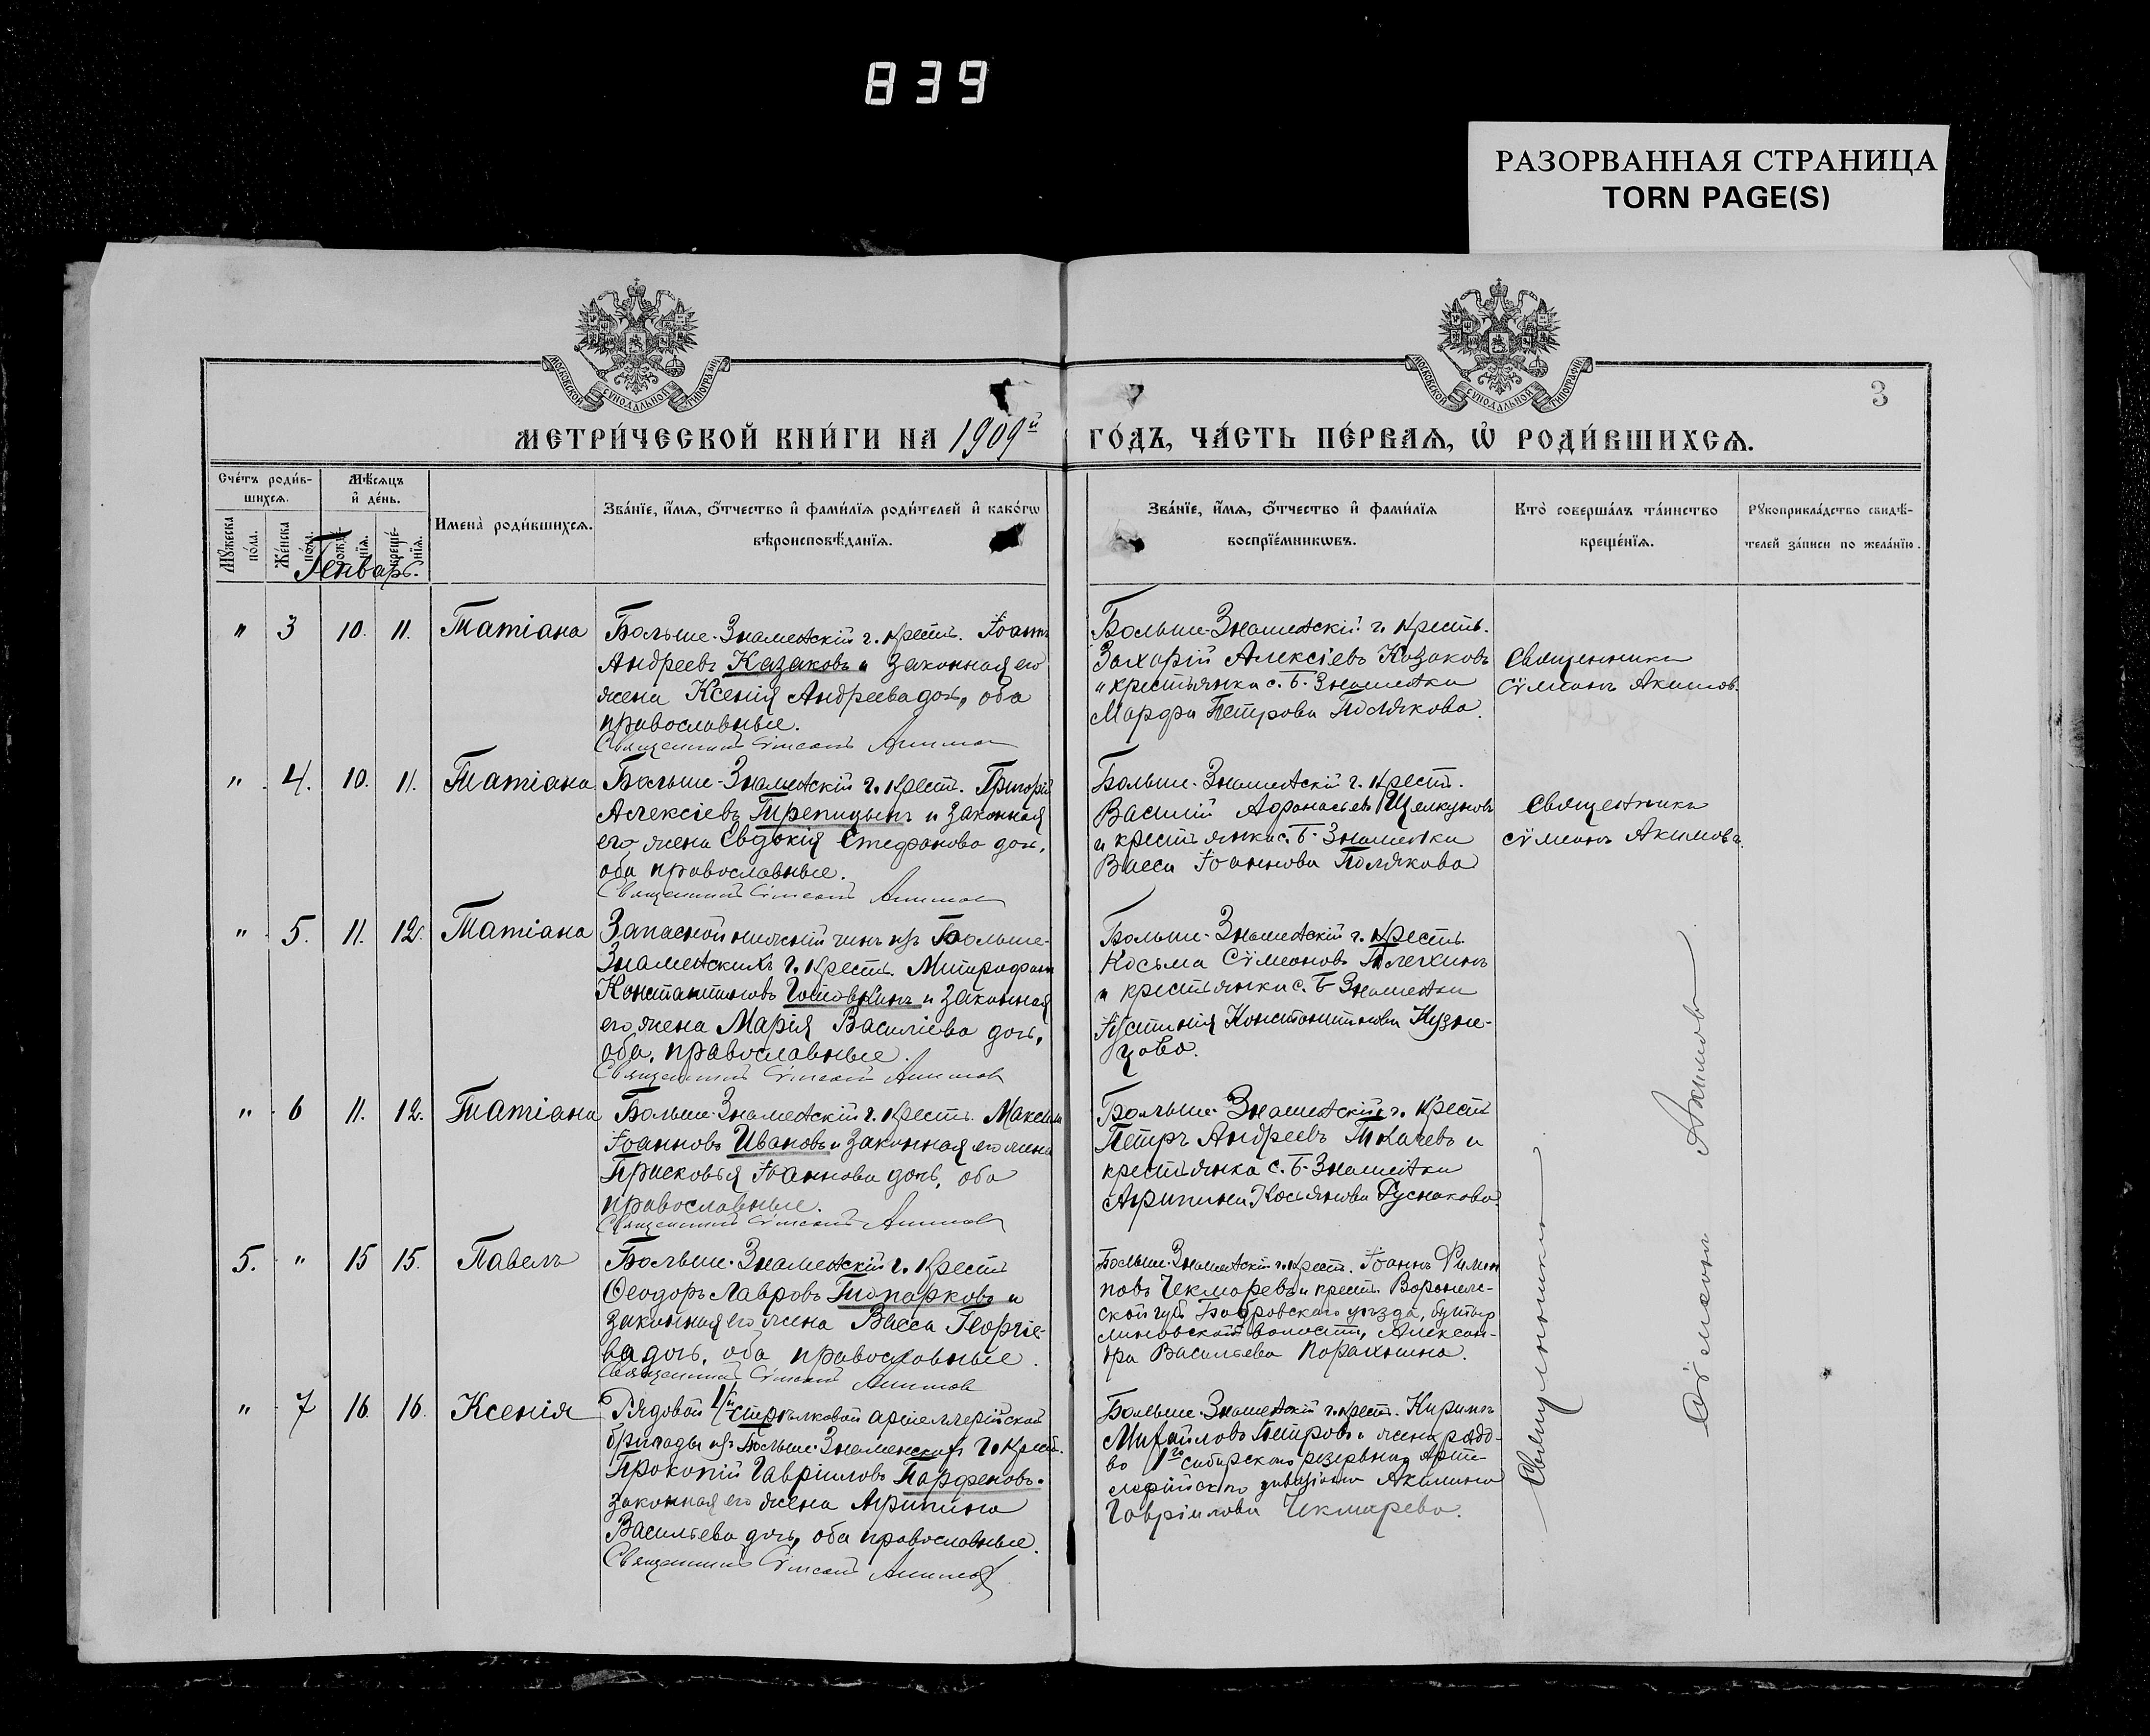 839
РАЗОРВАННАЯ СТРАНИЦА
TORN PAGE(S)
МОСКОВСКОЙ СѴНОДАЛЬНОЙ ТИПОГРАФІИ
МОСКОВСКОЙ СѴНОДАЛЬНОЙ ТИПОГРАФІИ
3
МЕТРИ́ЧЕСКОЙ КНИ́ГИ НА 1909й ГО́ДЪ, ЧА́СТЬ ПЕ́РВАѦ, Ѡ҆ РОДИ́ВШИХСѦ.
Сче́тъ роди́в-
шихсѧ.
Мꙋжеска по́ла.
Же́нска по́ла.
Мѣ́сѧцъ
и҆ де́нь.
рожде́нїѧ.
креще́нїѧ.
Имена̀ роди́вшихсѧ.
Зва́нїе, и҆́мѧ, ѻ҆́тчество и҆ фами́лїѧ роди́телей и҆ како́гѡ
вѣроисповѣ́данїѧ.
Зва́нїе, и҆́мѧ, ѻ҆́тчество и҆ фами́лїѧ
воспрїе́мникѡвъ.
Кто̀ соверша́лъ та́инство
креще́нїѧ.
Рꙋкоприкла́дство свидѣ́-
телей за́писи по жела́нїю.
Генварь.
" 3 10. 11. Татіана
Больше-Знаменскій г. крест. Іоаннъ
Андреевъ Казаковъ и законная его
жена Ксенія Андреева дочь, оба
православные.
Священникъ Сѵмеонъ Акимов
Больше-Знаменскій г. крест.
Захарій Алексіевъ Казаковъ
и крестьянка с. Б-Знаменки
Марфа Петрова Полякова.
Священникъ
Сѵмеонъ Акимов.
" 4. 10. 11. Татіана
Больше-Знаменскій г. крест. Григорій
Алексіевъ Трепицынъ и законная
его жена Евдокія Стефанова дочь,
оба православные.
Священникъ Сѵмеонъ Акимов
Больше-Знаменскій г. крест.
Василій Афанасьевъ Щелкуновъ
и крестьянка с. Б-Знаменки
Васса Іоаннова Полякова
Священникъ
Сѵмеонъ Акимовъ.
" 5. 11. 12. Татіана
Запасной нижній чинъ изъ Больше-
Знаменскихъ г. крест. Митрофанъ
Константиновъ Головкинъ и законная
его жена Марія Василіева дочь,
оба православные.
Священникъ Сѵмеонъ Акимов
Больше-Знаменскій г. крест.
Косьма Сѵмеоновъ
и крестьянка с. Б-Знаменки
Іустинія Константинова Кузне-
цова.
" 6 11. 12. Татіана
Больше-Знаменскій г. крест. Максимъ
Іоанновъ Ивановъ и законная его жена
Прасковья Іоаннова дочь, оба
православные.
Священникъ Сѵмеонъ Акимов
Больше-Знаменскій г. крест
Петръ Андреевъ Ткачевъ и
крестьянка с. Б-Знаменки
Агрипина Косьянова Руснакова.
5. " 15 15. Павелъ
Больше-Знаменскій г. крест
Ѳеодоръ Лавровъ Топорковъ и
законная его жена Васса Георгіе-
ва дочь, оба православные.
Священникъ Сѵмеонъ Акимов
Больше-Знаменскій г. крест. Іоаннъ Филип
повъ Чекмаревъ и крест. Воронеж-
ской губ. Бобровскаго уѣзда,
волости, Алексан-
дра Васильева
" 7 16. 16. Ксенія
Рядовой 1й стрѣлковой артиллерійской
бригады изъ Больше-Знаменскихъ г. крест.
Прокопій Гавріиловъ Парфеновъ и
законная его жена Агрипина
Васильева дочь, оба православные.
Священникъ Сѵмеонъ Акимов
Больше-Знаменскій г. крест. Кириллъ
Михайловъ Петровъ и жена рядо-
во 1го Сибирскаго резервнаго Арти-
лерійскаго дивизіона Акилина
Гавріилова Чекмарева.
Священникъ
Сѵмеонъ Акимовъ